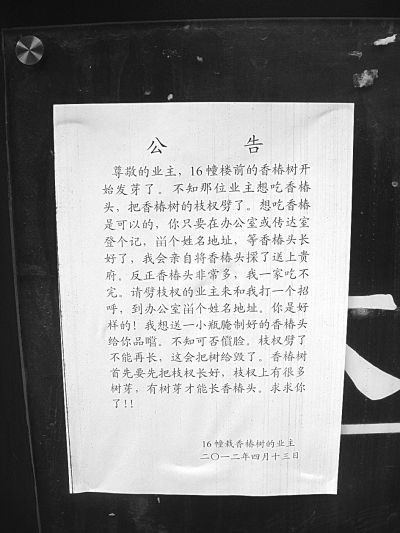 公 告
尊敬的业主，16幢楼前的香椿树开
始发芽了。不知那位业主想吃香椿
头，把香椿树的枝杈劈了。想吃香椿
是可以的，你只要在办公室或传达室
登个记，留个姓名地址，等香椿头长
好了，我会亲自将香椿头採了送上贵
府。反正香椿头非常多，我一家吃不
完。请劈枝杈的业主来和我打一个招
呼，到办公室留个姓名地址。你是好
样的！我想送一小瓶腌制好的香椿头
给你品嚐。不知可否偿脸。枝杈劈了
不能再长，这会把树给毁了。香椿树
首先要先把枝杈长好，枝杈上有很多
树芽，有树芽才能长香椿头。求求你
了!!
16幢栽香椿树的业主
二〇一二年四月十三日